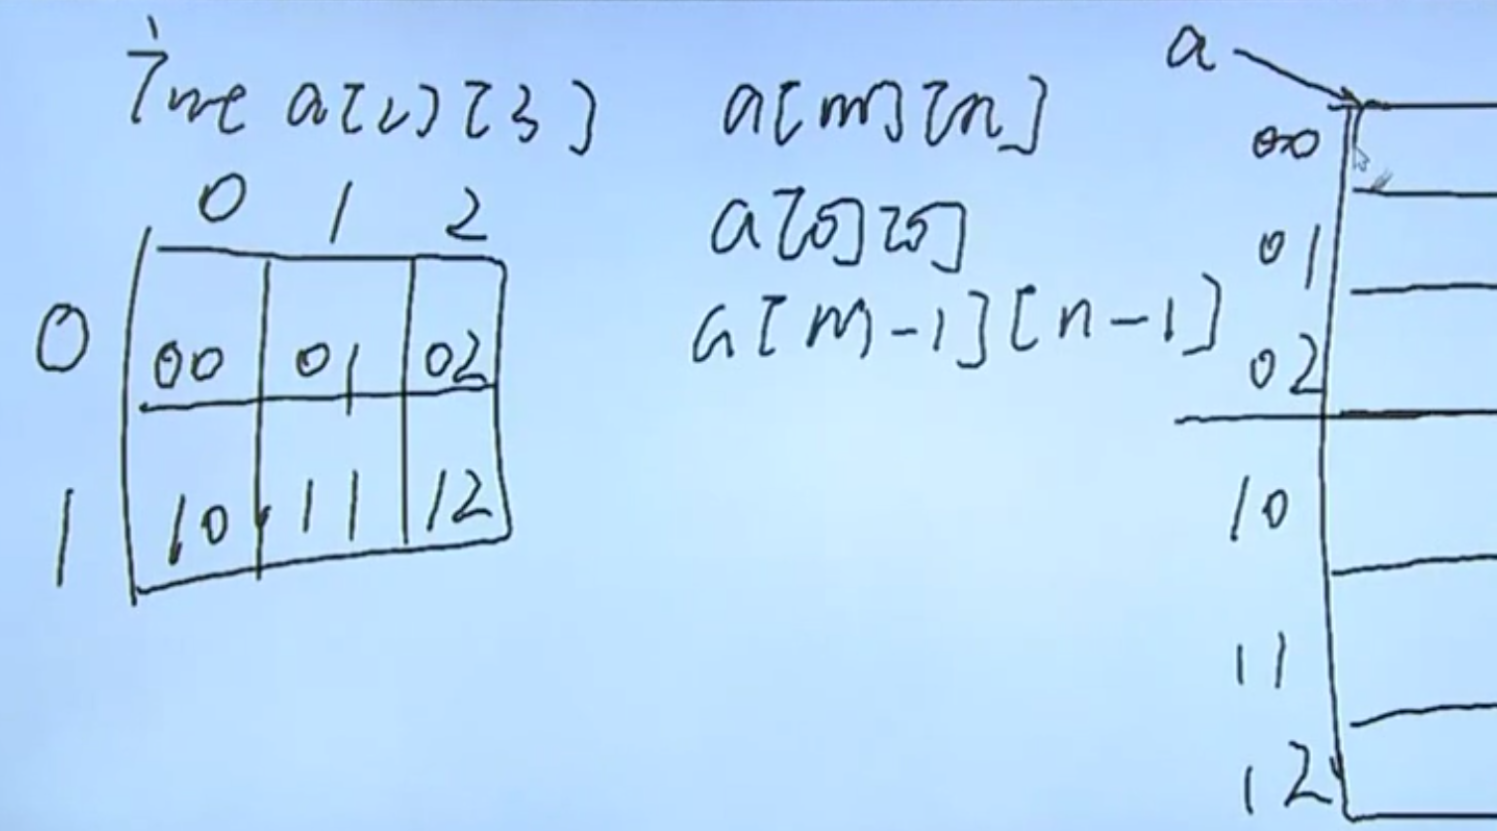 int a[2][3]
0 1 2
0 00 01 02
1 10 11 12
a[m][n]
a[0][0]
a[m-1][n-1]
a
00
01
02
10
11
12